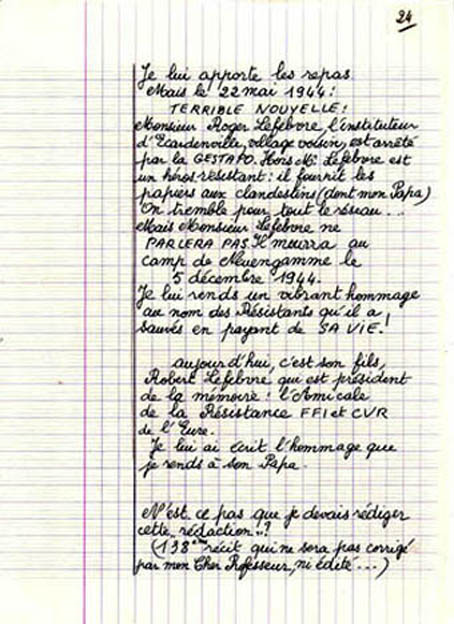 24
Je lui apporte les repas
Mais le 22 mai 1944 :
TERRIBLE NOUVELLE !
Monsieur Roger Lefebvre l'instituteur
d'Ecardenville, village voisin, est arrêté
par la GESTAPO. Hors Mr Lefebvre est
un héros-résistant : il fournit les
papiers aux clandestins (dont mon Papa)
On tremble pour tout le réseau...
Mais Monsieur Lefebvre ne
PARLERA PAS. Il mourra au
camp de Neuengamme le
5 décembre 1944.
Je lui rends un vibrant hommage
au nom des Résistants qu'il a
sauvés en payant de SA VIE !
aujourd'hui, c'est son fils,
Robert Lefebvre qui est président
de la mémoire : l'Amicale
de la Résistance FFI et CVR
de l'Eure.
Je lui ai écrit l'hommage que
je rends à son Papa.
N'est ce pas que je devais rédiger
cette rédaction..?
(138ème récit qui ne sera pas corrigé
par mon Cher Professeur, ni édité...)